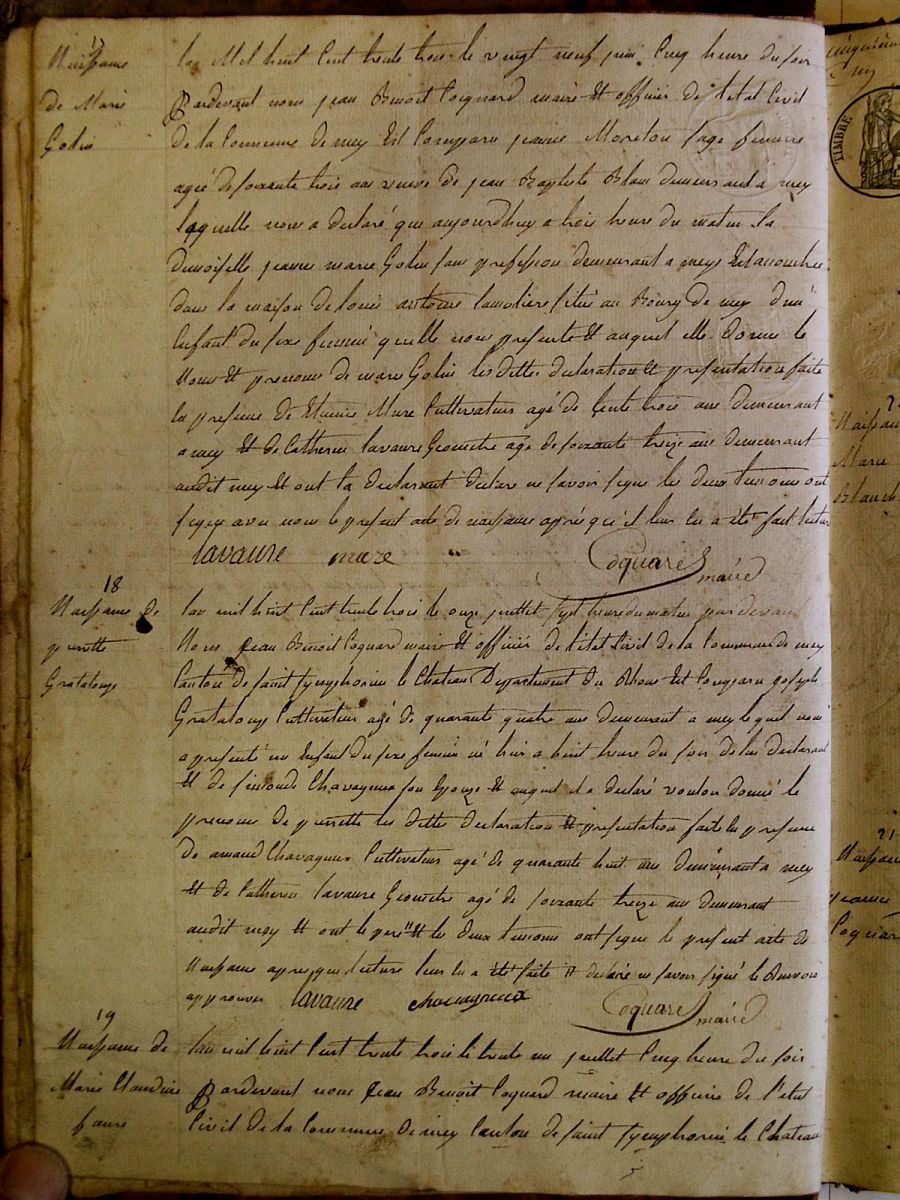 17
Naissance
de Marie
Golin
lan Mil huit Cent trente trois le vingt neuf juin Cinq heure du soir
Pardevant nous jean Benoit Coquard maire et officier de létat Civil
de la Commune de mey Est Comparu jeanne Moretou sage femme
agée de soixante trois ans veuve de jean Baptiste Blanc demeurant a mey
laquelle nous a declaré que aujourdhuy a trois heure du matin la
demoiselle jeanne marie Golin sans profession demeurant a meys Est accouchée
dans la maison de louis antoine lamoliere située au Bourg de mey dun
Enfant du sexe feminin quelle nous presente et auquel elle donne le
Nom et prenom de marie Golin les dittes declaration et presentation faite
En presence de Etienne Mure Cultivateur agé de trente trois ans demeurant
a mey et de Catherin lavaure Geometre agé de soixante treize ans demeurant
audit mey et ont la declarant declare ne savoir signe les deux temoins ont
signe avec nous le present acte de naissance après qu'il leur en a été fait lecture
lavaure muze Coquard maire
18
Naissance de
pierrette
Grataloup
lan mil huit Cent trente trois le onze juillet sept heure du matin par devant
Nous jean Benoit Coquard maire et officier de létat Civil de la Commune de mey
Canton de saint symphorien le Chateau Departement du Rhone Est Comparu joseph
Grataloup Cultivateur agé de quarante quatre ans demeurant a mey lequel nous
a presenté un Enfant du sexe feminin né hier a huit heure du soir de lui declarant
et de simonde Chavagneux son Epouze et auquel il a declaré vouloir donné le
prenom de pierrette les dittes declaration et presentation faite En presence
de Chavagneux Cultivateur agé de quarante huit ans demeurant a mey
et de Catherin lavaure Geometre agé de soixante treize ans demeurant
audit mey et ont le pere et les deux temoins ont signe le present acte de
Naissance apres que lecture leur En a été faite et declaré ne savoir signé le
approuver lavaure chavagneux Coquard maire
19
Naissance de
Marie Claudine
faure
lan mil huit Cent trente trois le trente un juillet Cinq heure du soir
Pardevant nous jean Benoit Coquard maire et officier de l'etat
Civil de la Commune de mey Canton de saint symphorien le Chateau
TIMBRE
Naissan
Marie
Blanch
21
Naissan
jeanne
Coquar